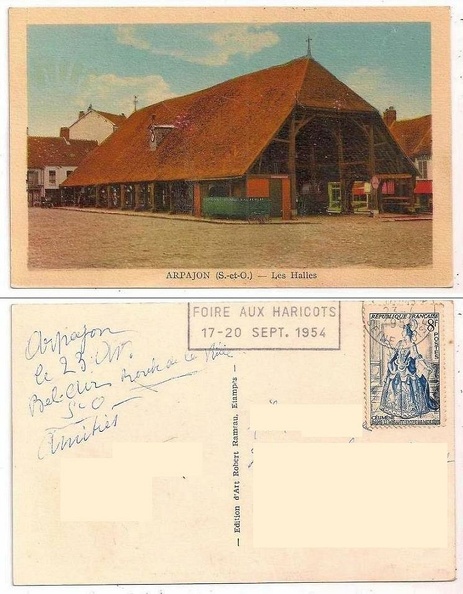 ARPAJON (S.-et-O.) — Les Halles
FOIRE AUX HARICOTS
17-20 SEPT. 1954
REPUBLIQUE FRANÇAISE
8F
POSTES
CÉLIMÈNE
Arpajon
le 23
Route de La
S & O
Amitiés
— Edition d'Art Robert Rameau, Etamp's —